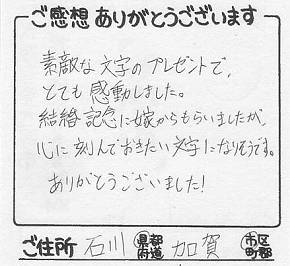 ご感想ありがとうございます
素敵な文字のプレゼントで、
とても感動しました。
結婚記念に嫁からもらいましたが、
心に刻んでおきたい文字になりそうです。
ありがとうございました!
ご住所 石川 都道府県 加賀 市区町郡